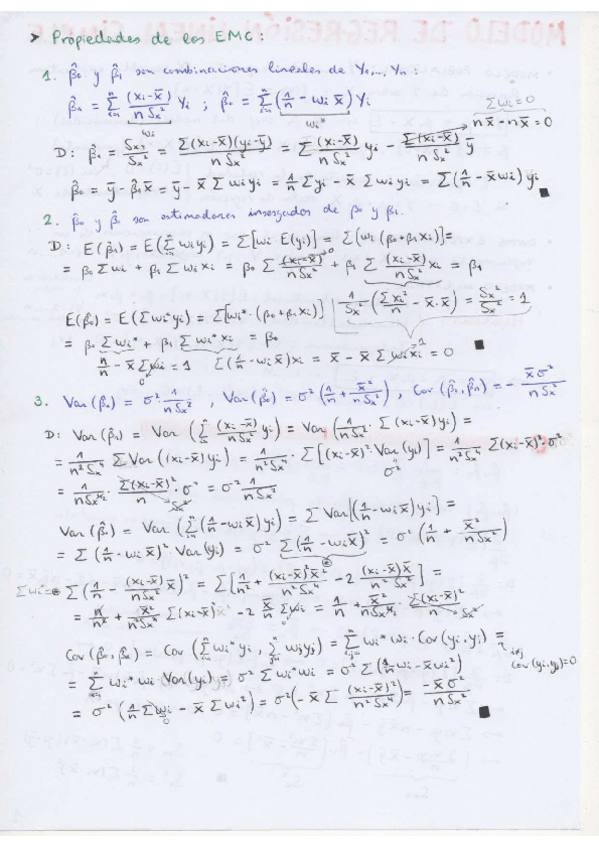 ➤ Propiedades de los EMC:
1. β̂₀ y β̂₁ son combinaciones lineales de Y₁,...,Yₙ:
β̂₁ = Σ (xi-x̄)/(nSx²) Yi ; β̂₀ = Σ(1/n - wi x̄) Yi
wi wi*
Σwi=0
nx̄ - nx̄ = 0
D: β̂₁ = Sxy/Sx² = Σ(xi-x̄)(yi-ȳ)/(nSx²) = Σ (xi-x̄)/(nSx²) yi - Σ(xi-x̄)/(nSx²) ȳ
β̂₀ = ȳ - β̂₁x̄ = ȳ - x̄ Σ wi yi = 1/n Σyi - x̄ Σ wi yi = Σ(1/n - x̄wi) yi ■
2. β̂₀ y β̂₁ son estimadores insesgados de β₀ y β₁.
D: E(β̂₁) = E(Σ wi yi) = Σ[wi E(yi)] = Σ[wi (β₀+β₁xi)] =
= β₀ Σ wi + β₁ Σ wi xi = β₀ Σ (xi-x̄)/(nSx²) + β₁ Σ (xi-x̄)/(nSx²) xi = β₁
E(β̂₀) = E(Σ wi* yi) = Σ[wi* · (β₀+β₁xi)] | 1/Sx² (Σxi²/n - x̄·x̄) = Sx²/Sx² = 1
= β₀ Σ wi* + β₁ Σ wi* xi = β₀
n/n - x̄ Σwi = 1 Σ(1/n - wi x̄)xi = x̄ - x̄ Σwi xi = 0 ■
3. Var(β̂₁) = σ² · 1/(nSx²) , Var(β̂₀) = σ² (1/n + x̄²/(nSx²)) , Cov(β̂₁,β̂₀) = - x̄σ²/(nSx²)
D: Var(β̂₁) = Var (Σ (xi-x̄)/(nSx²) yi) = Var (1/(nSx²) · Σ(xi-x̄) yi) =
= 1/(n²Sx⁴) Σ Var((xi-x̄) yi) = 1/(n²Sx⁴) · Σ[(xi-x̄)² · Var(yi)] = 1/(n²Sx⁴) Σ(xi-x̄)² · σ²
σ²
= 1/(nSx⁴) · Σ(xi-x̄)²/n · σ² = σ² 1/(nSx²)
Sx²
Var(β̂₀) = Var (Σ(1/n - wi x̄) yi) = Σ Var[(1/n - wi x̄) yi] =
= Σ (1/n - wi x̄)² Var(yi) = σ² Σ(1/n - wi x̄)² = σ² (1/n + x̄²/(nSx²))
Σwi=0 Σ(1/n - (xi-x̄)/(nSx²) x̄)² = Σ[1/n² + (xi-x̄)²x̄²/(n²Sx⁴) - 2 (xi-x̄)x̄/(n²Sx²)] =
= n/n² + x̄²/(n²Sx⁴) Σ(xi-x̄)² - 2 x̄/n Σwi = 1/n + x̄²/(nSx⁴) · Σ(xi-x̄)²/n
Sx²
Cov(β̂₀,β̂₁) = Cov (Σ wi* yi , Σ wj yj) = Σ wi* wi · Cov(yi,yj) =
i≠j
Cov(yi,yj)=0
= Σ wi* wi Var(yi) = σ² Σ wi* wi = σ² Σ(1/n wi - x̄wi²)
= σ² (1/n Σwi - x̄ Σwi²) = σ² (-x̄ Σ (xi-x̄)²/(n²Sx⁴)) = -x̄σ²/(nSx²) ■